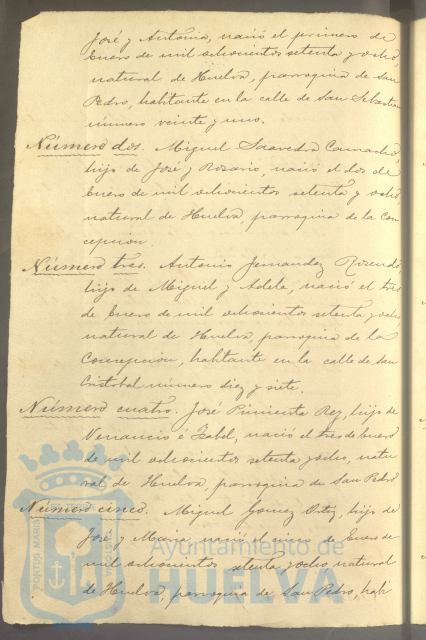 José y Antonia, nació el primero de
Enero de mil ochocientos setenta y ocho,
natural de Huelva, parroquia de San
Pedro, habitante en la calle de San Sebastian
número veinte y uno.
Número dos. Miguel Saavedra Camacho,
hijo de José y Rosario, nació el dos de
Enero de mil ochocientos setenta y ocho
natural de Huelva, parroquia de la Con
cepcion.
Número tres. Antonio Fernandez Rosendo,
hijo de Miguel y Adela, nació el tres
de Enero de mil ochocientos setenta y ocho,
natural de Huelva, parroquia de la
Concepcion, habitante en la calle de San
Cristobal número diez y siete.
Número cuatro. José Pimienta Rey, hijo de
Venancio é Isabel, nació el tres de Enero
de mil ochocientos setenta y ocho, natu
ral de Huelva, parroquia de San Pedro
Número cinco. Miguel Gomez Ortiz, hijo de
José y Maria, nació el cinco de Enero de
mil ochocientos setenta y ocho, natural
de Huelva, parroquia de San Pedro, habi
PORTUS MARIS
Ayuntamiento de
HUELVA